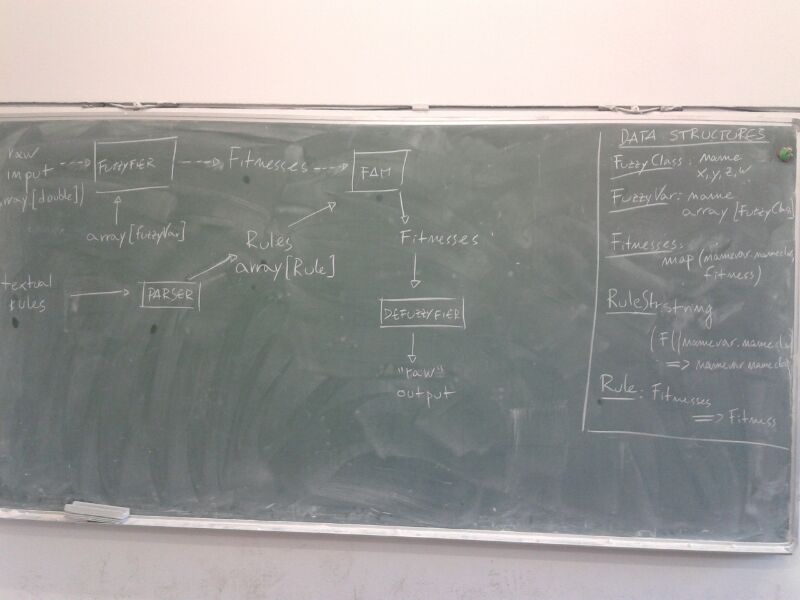 raw
input
array[double])
FUZZYFIER
array[FuzzyVar]
Fitnesses
FAM
Rules
array[Rule]
textual
rules
PARSER
Fitnesses
DEFUZZYFIER
"raw"
output
DATA STRUCTURES
FuzzyClass: name
x,y,z,w
FuzzyVar: name
array[FuzzyClas
Fitnesses:
map(namevar.nameclas
fitness)
RuleStr string
namevar.namecla
=> namevar.namecla
Rule: Fitnesses
=> Fitness